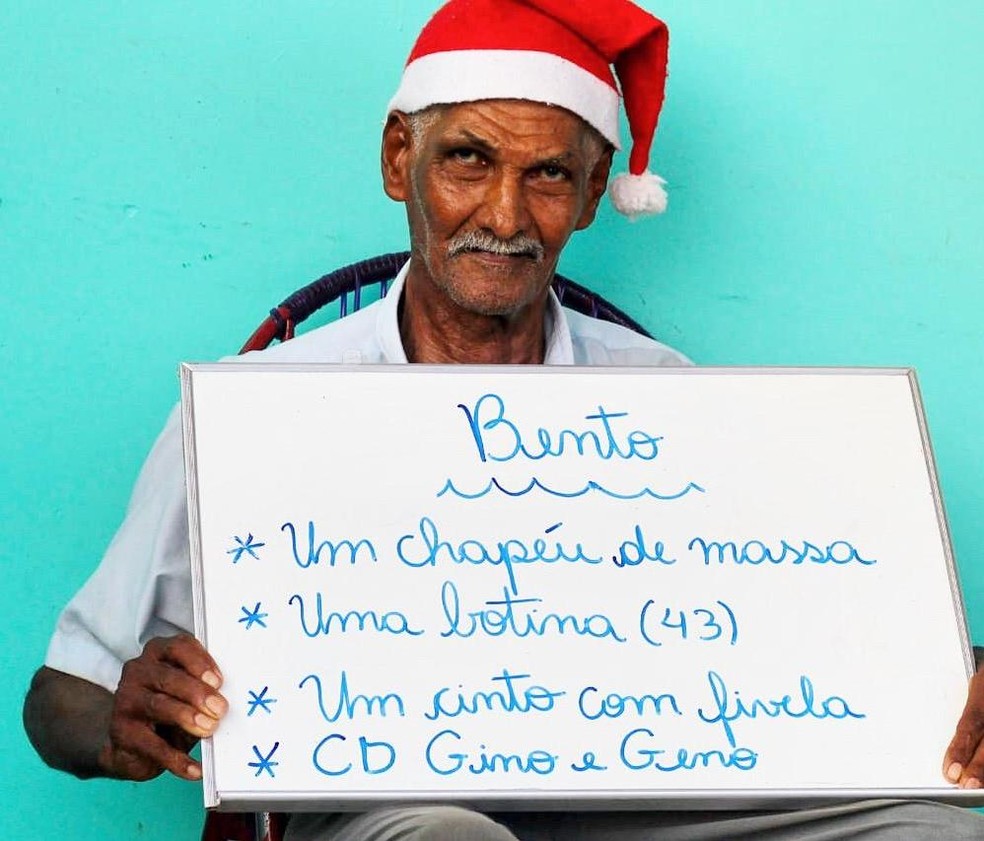 Bento
* Um chapéu de massa
* Uma botina (43)
* Um cinto com fivela
* CD Gino e Geno